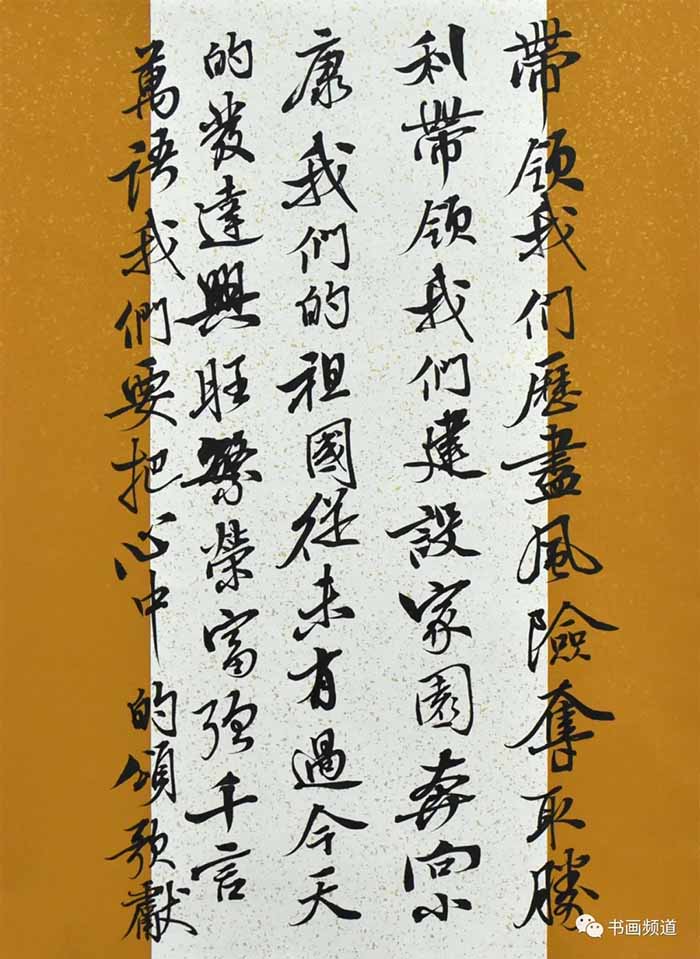 帶领我们歷盡風險奪取勝
利帶领我们建設家園奔向小
康我們的祖國從未有過今天
的發達興旺繁榮富强千言
萬语我們要把心中的頌歌獻
书画频道